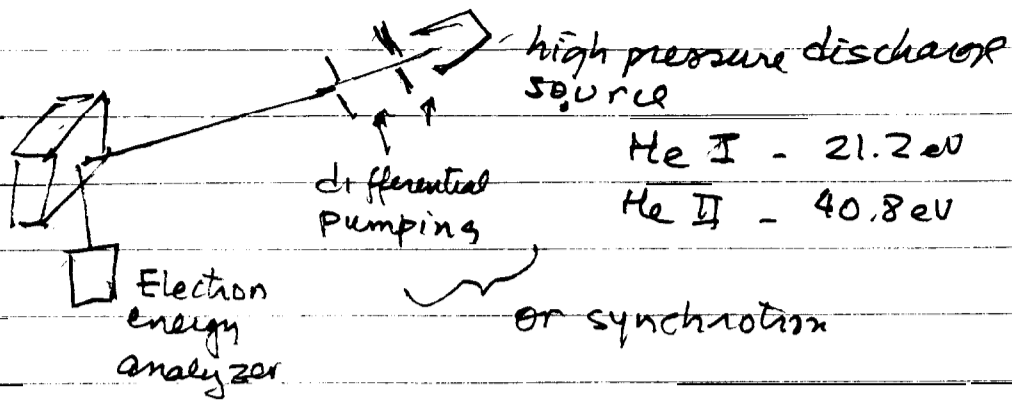 high pressure discharge
source
He I - 21.2 eV
He II - 40.8 eV
differential
pumping
Electron
energy
analyzer
or synchrotron